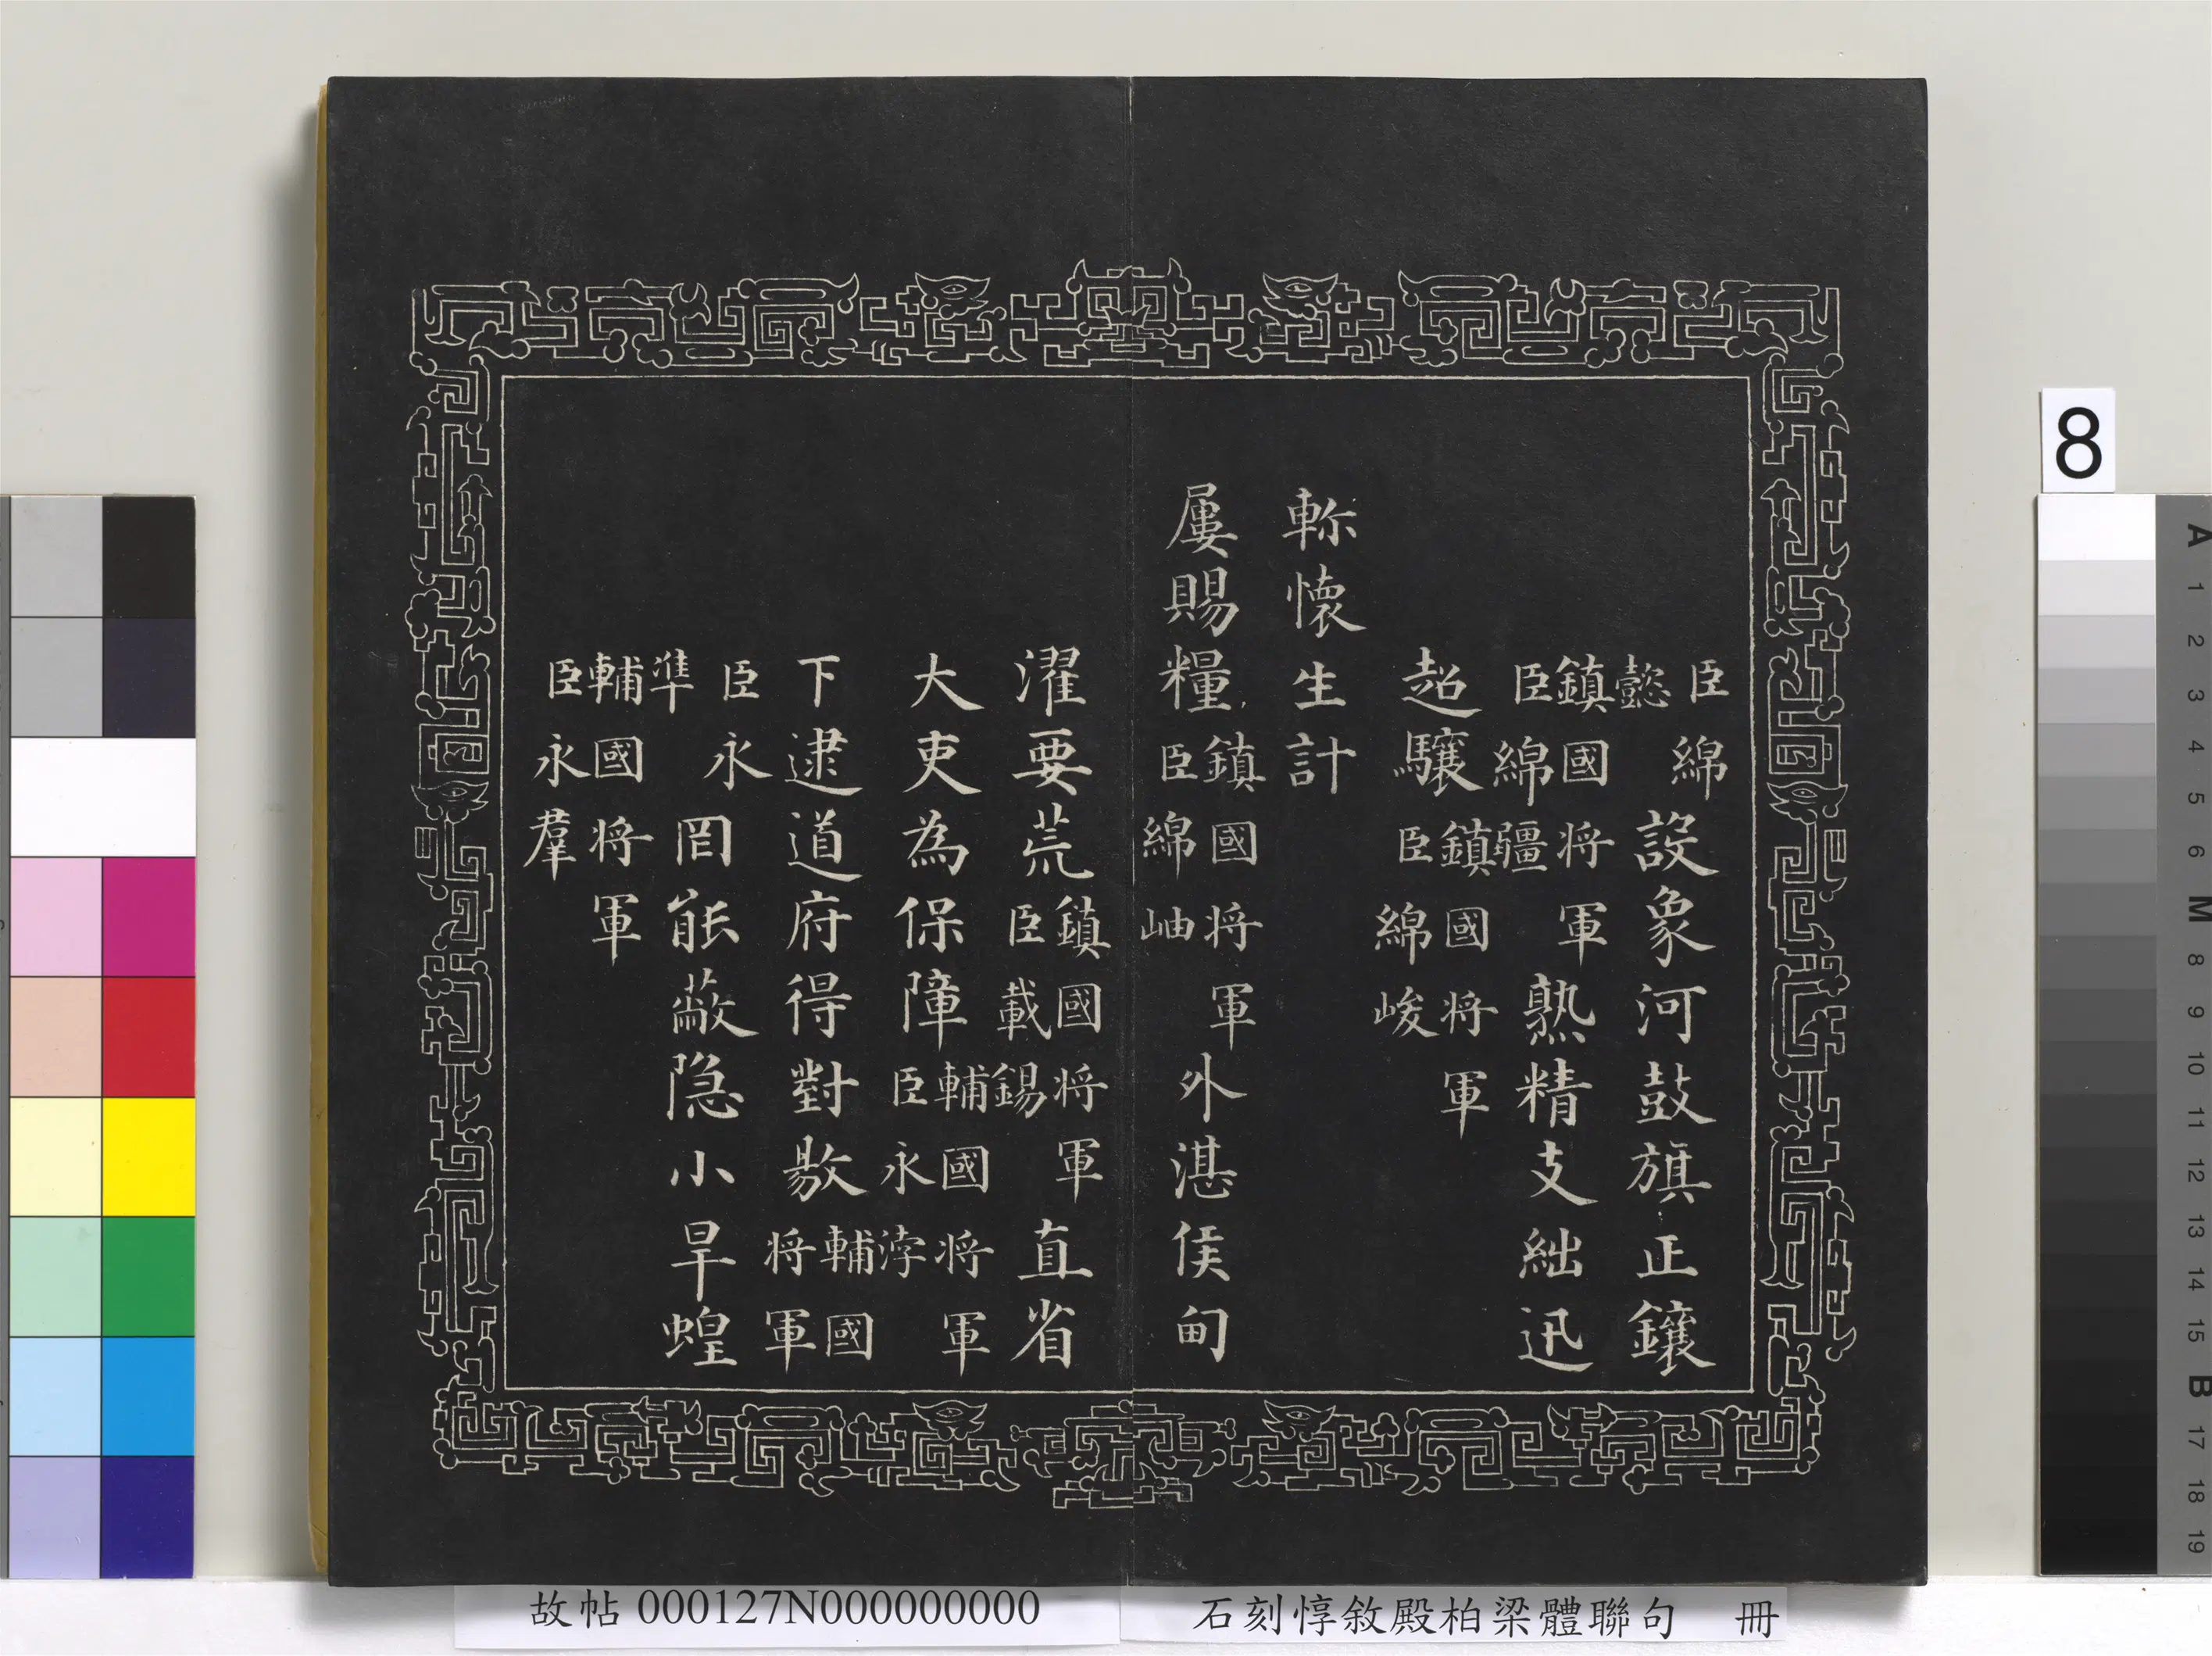 臣綿
懿
設象河鼓旗正鑲
鎮國将軍
臣綿疆
熟精支絀迅
超驤
鎮國将軍
臣綿峻
軫懷生計
屢賜糧
鎮國将軍
臣綿岫
外湛侯甸
濯要荒
鎮國将軍
臣載錫
直省
大吏為保障
輔國将軍
臣永浡
下逮道府得對敭
輔國
将軍
臣永
準
罔能蔽隐小旱蝗
輔國将軍
臣永羣
故帖 000127N000000000
石刻惇敘殿柏梁體聯句 冊
8
A
1
2
3
4
5
6
M
8
9
10
11
12
13
14
15
B
17
18
19